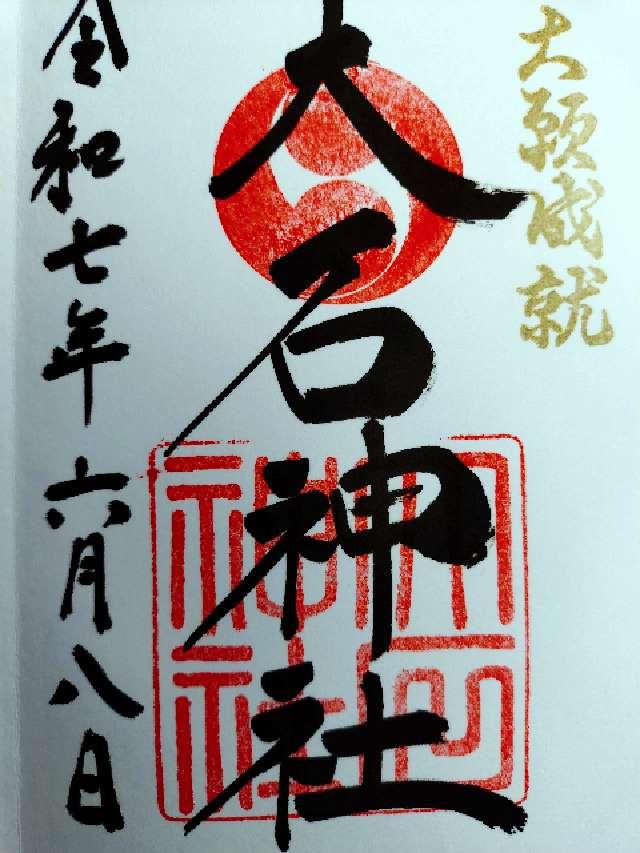 大願成就
大石神社
大石神社
令和七年六月八日